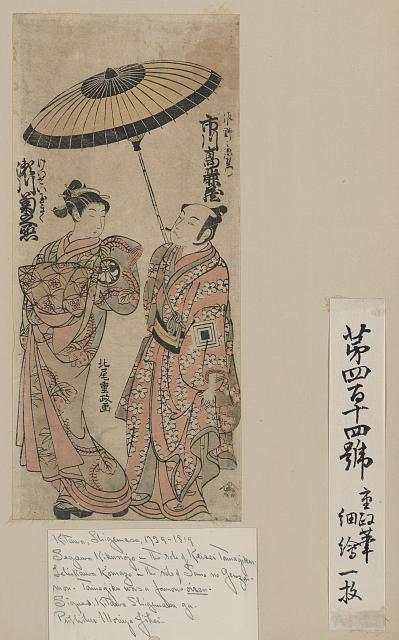 市川高麗蔵
けいせい
瀬川菊之丞
北尾重政画
第四百十四號
重政筆
細繪一枚
Kitawo, Shigemasa, 1739-1819
Segawa Kikunojo in the role of Keisei Tamagiku.
Ichikawa Komazo in the role of Sano no Genzai-
mon. Tamagiku was a famous oiran.
Signed: Kitawo Shigemasa ga.
Publisher